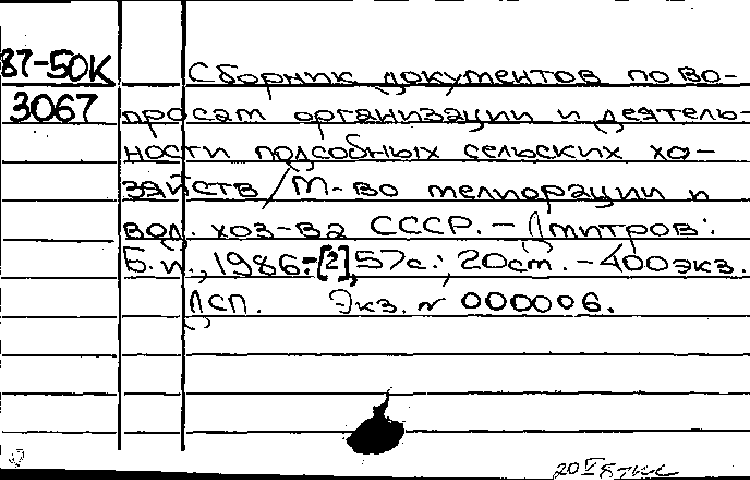 87-50К
3067
Сборник документов по во-
просам организации и деятель-
ности подсобных сельских хо-
зяйств / М-во мелиорации и
вод. хоз-ва СССР. - Дмитров:
Б.и., 1986. - [2], 57с.; 20см. - 400экз.
ДСП. Экз. № 000006.
20 V